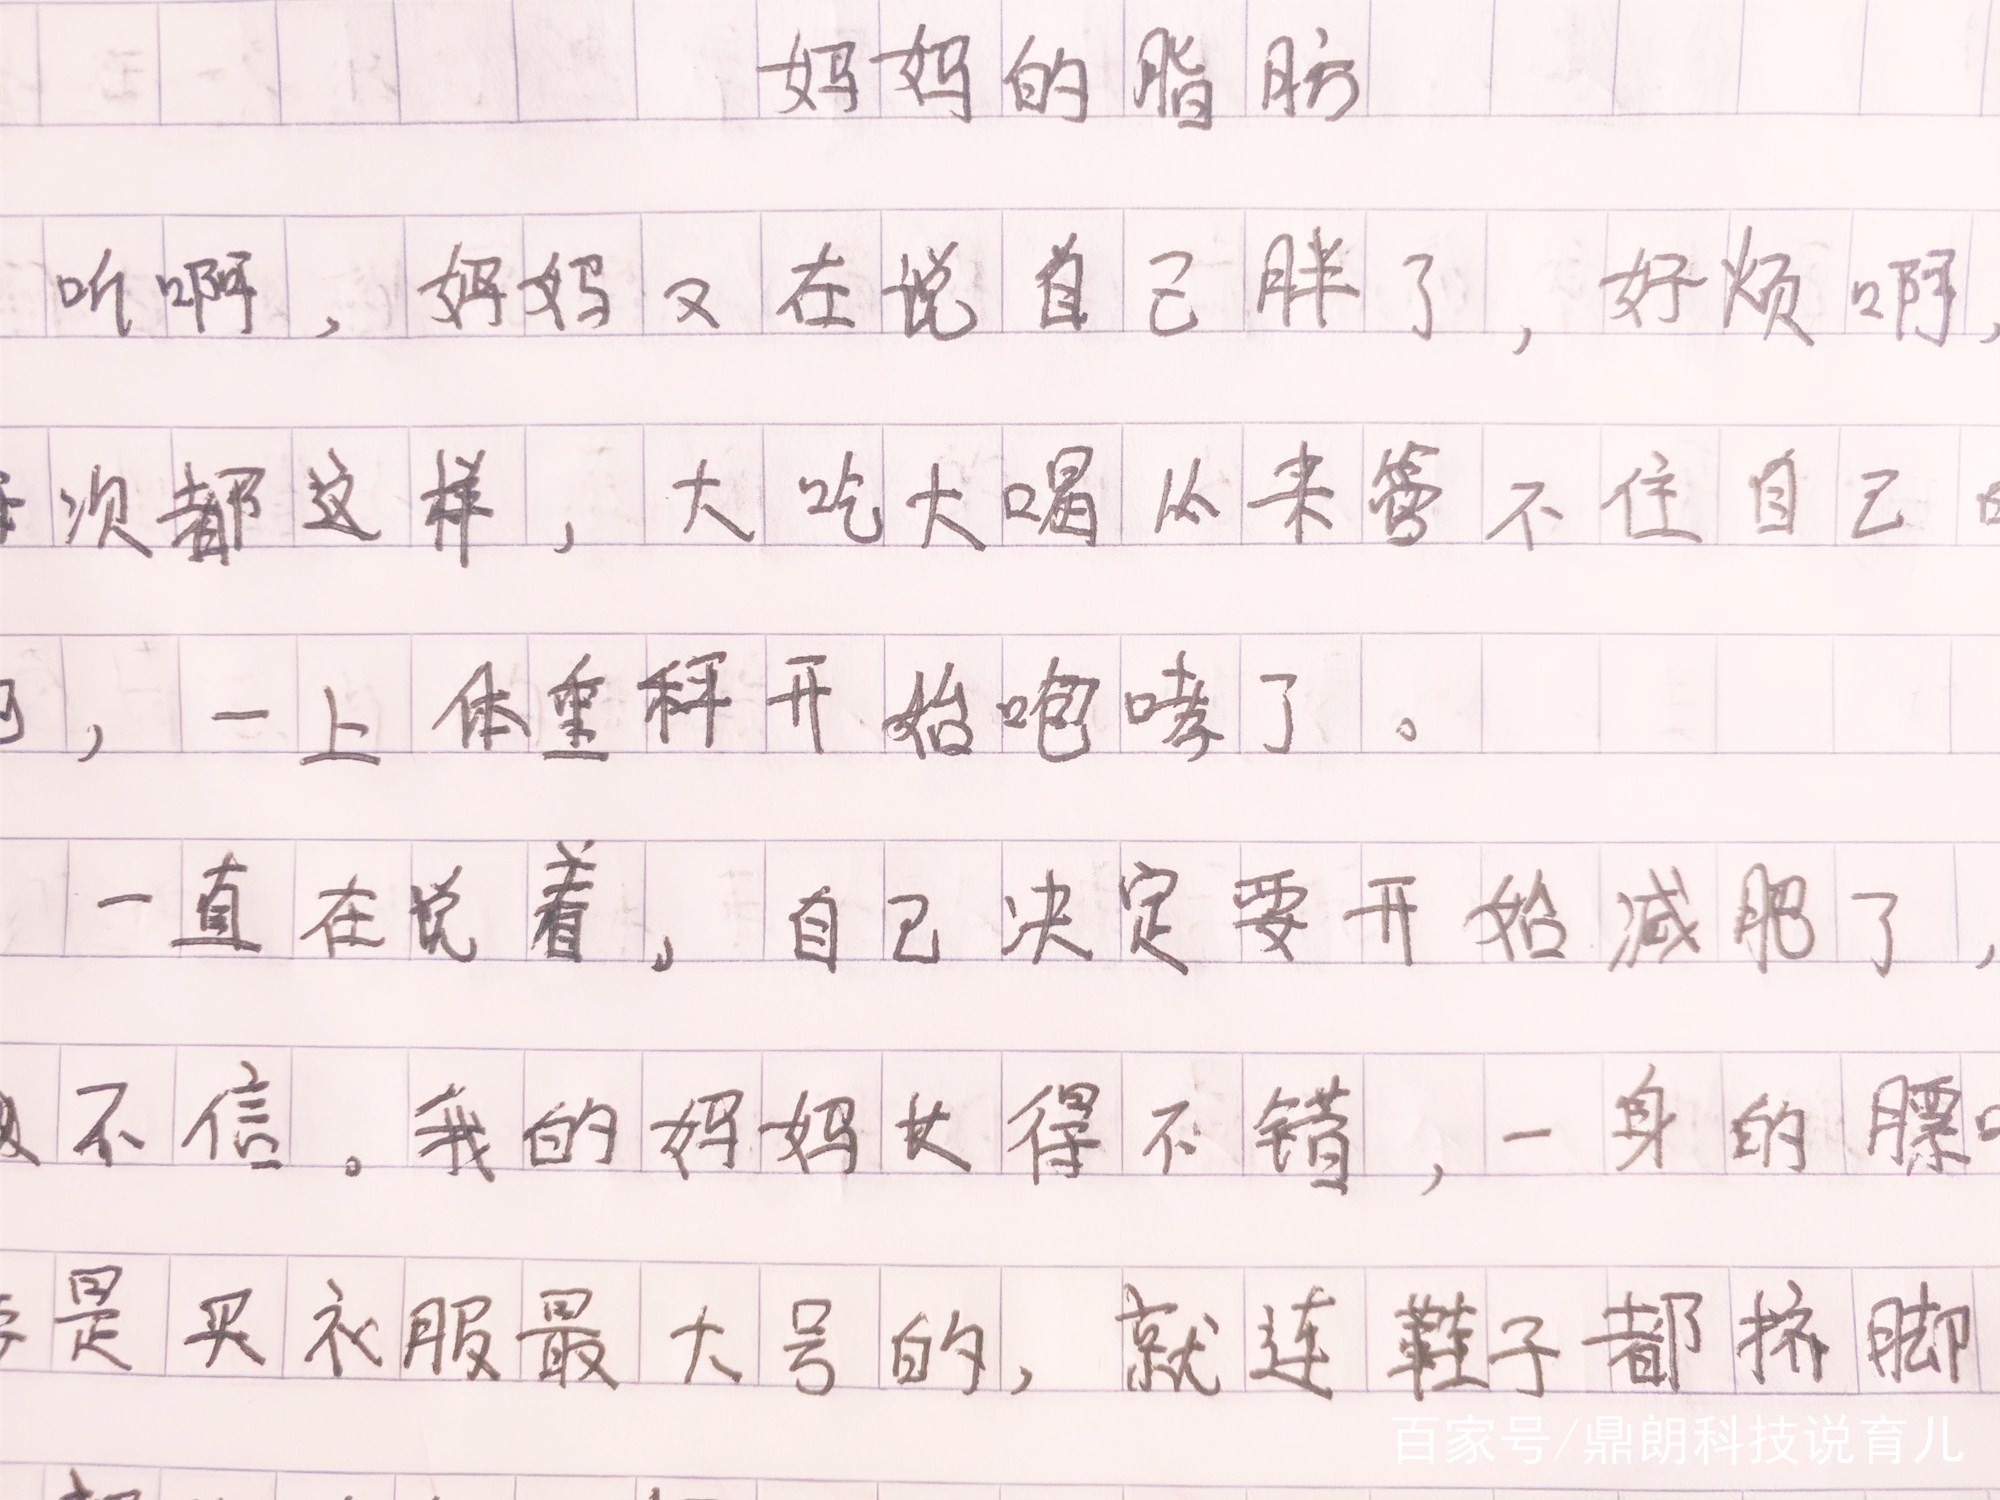 妈妈的脂肪
听啊，妈妈又在说自己胖了，好烦啊，
次都这样，大吃大喝从来管不住自己
，一上体重秤开始咆哮了。
一直在说着，自己决定要开始减肥了，
不信。我的妈妈长得不错，一身的膘
是买衣服最大号的，就连鞋子都挤脚
百家号/鼎朗科技说育儿